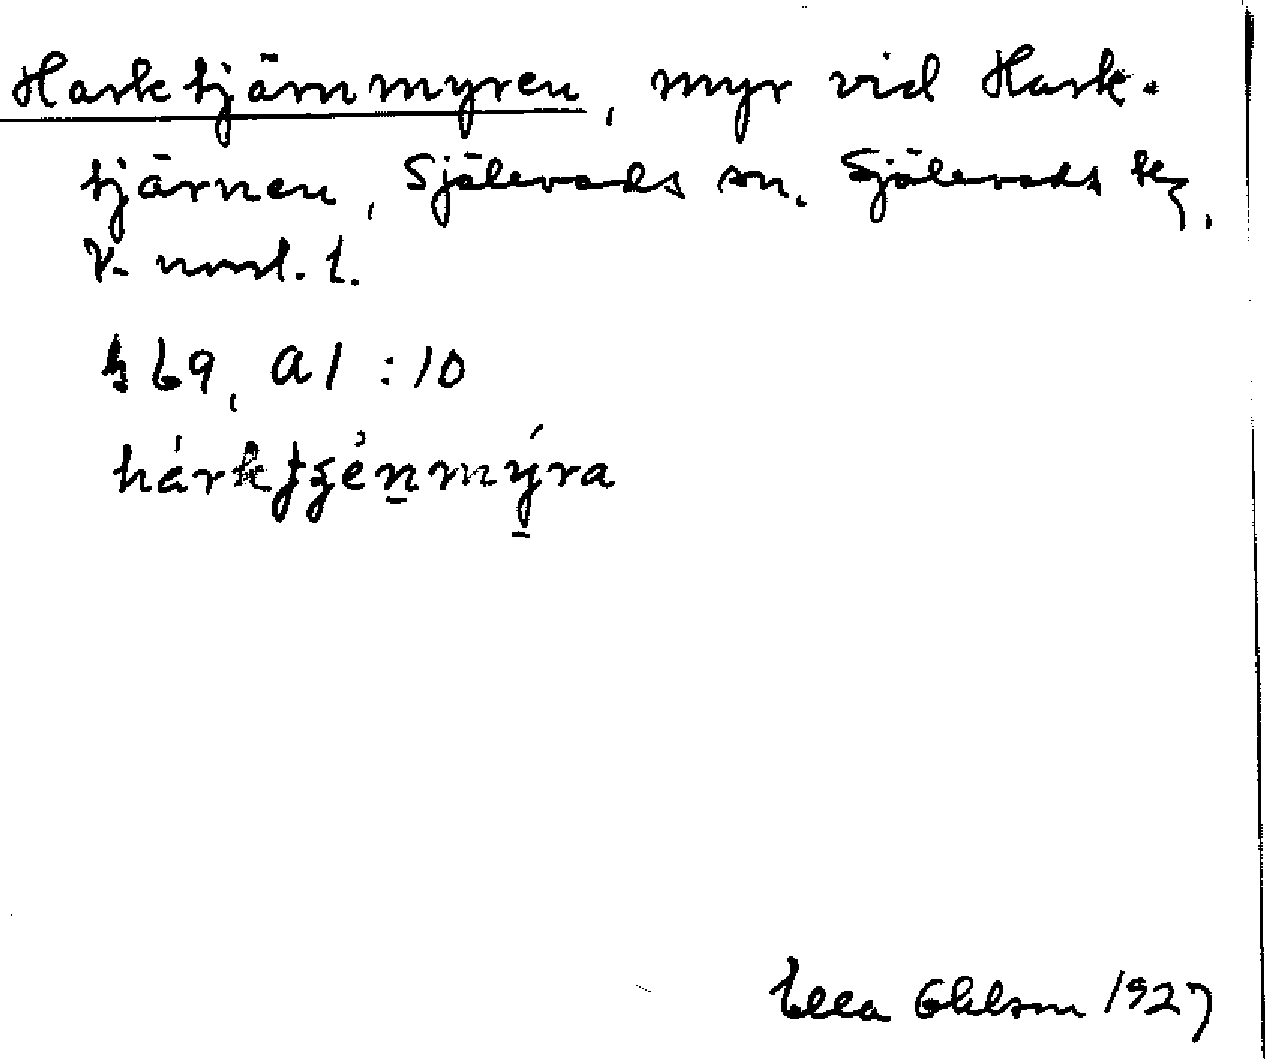 Harktjärnmyren, myr vid Hark-
tjärnen, Själevads sn. Själevads tg,
V. norrl. l.
§ 69, a 1 : 10
hárktʃénmýra
Ella Ohlson 1927